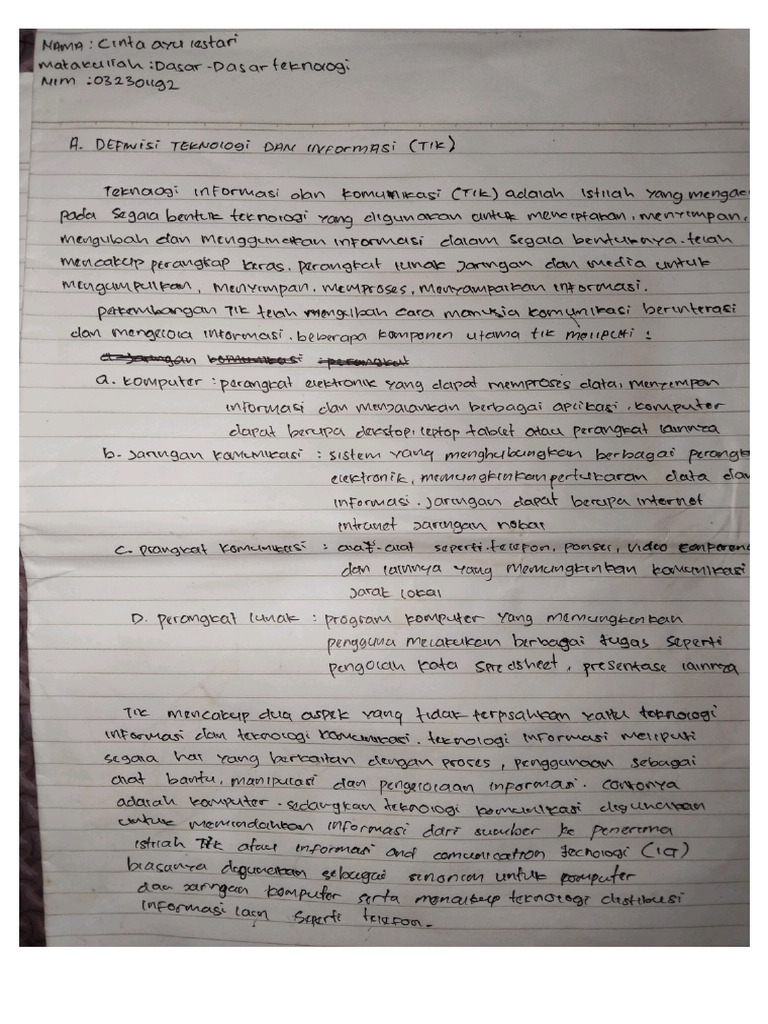 NAMA : Cinta ayu lestari
Matakuliah : Dasar-Dasar teknologi
NIM : 032301192
A. DEFINISI TEKNOLOGI DAN INFORMASI (TIK)
Teknologi informasi dan komunikasi (TIK) adalah istilah yang mengac
pada segala bentuk teknologi yang digunakan untuk menciptakan, menyimpan,
mengubah dan menggunakan informasi dalam segala bentuknya. telah
mencakup perangkap keras, perangkat lunak jaringan dan media untuk
mengumpulkan, menyimpan, memproses, menyampaikan informasi.
perkembangan TIK telah mengubah cara manusia komunikasi berinterasi
dan mengelola informasi. beberapa komponen utama tik meliputi :
a. jaringan komunikasi : perangkat
a. komputer : perangkat elektronik yang dapat memproses data, menyempan
informasi dan menjalankan berbagai aplikasi. komputer
dapat berupa dekstop, leptop tablet atau perangkat lainnya
b. Jaringan komunikasi : sistem yang menghubungkan berbagai perangk
elektronik, memungkinkan pertukaran data dan
informasi. jaringan dapat berupa internet
intranet jaringan nobal
c. prangkat komunikasi : alat-alat seperti telefon, ponsel, video conferen
dan lainnya yang memungkinkan komunikasi
jarak lokal
D. perangkat lunak : program komputer yang memungkinkan
pengguna melakukan berbagai tugas seperti
pengolah kata spredsheet, presentase lainnya
TIK mencakup dua aspek yang tidak terpisahkan yaitu teknologi
informasi dan teknologi komunikasi. teknologi informasi meliputi
segala hal yang berkaitan dengan proses, penggunaan sebagai
alat bantu, manipulasi dan pengelolaan informasi. contonya
adalah komputer. sedangkan teknologi komunikasi digunakan
untuk memindahkan informasi dari sumber ke penerima
istilah TIK atau informasi and comunication tecnologi (ICT)
biasanya digunakan sebagai sinonim untuk komputer
dan jaringan komputer serta mencakup teknologi distibusi
informasi lain seperti telefon.